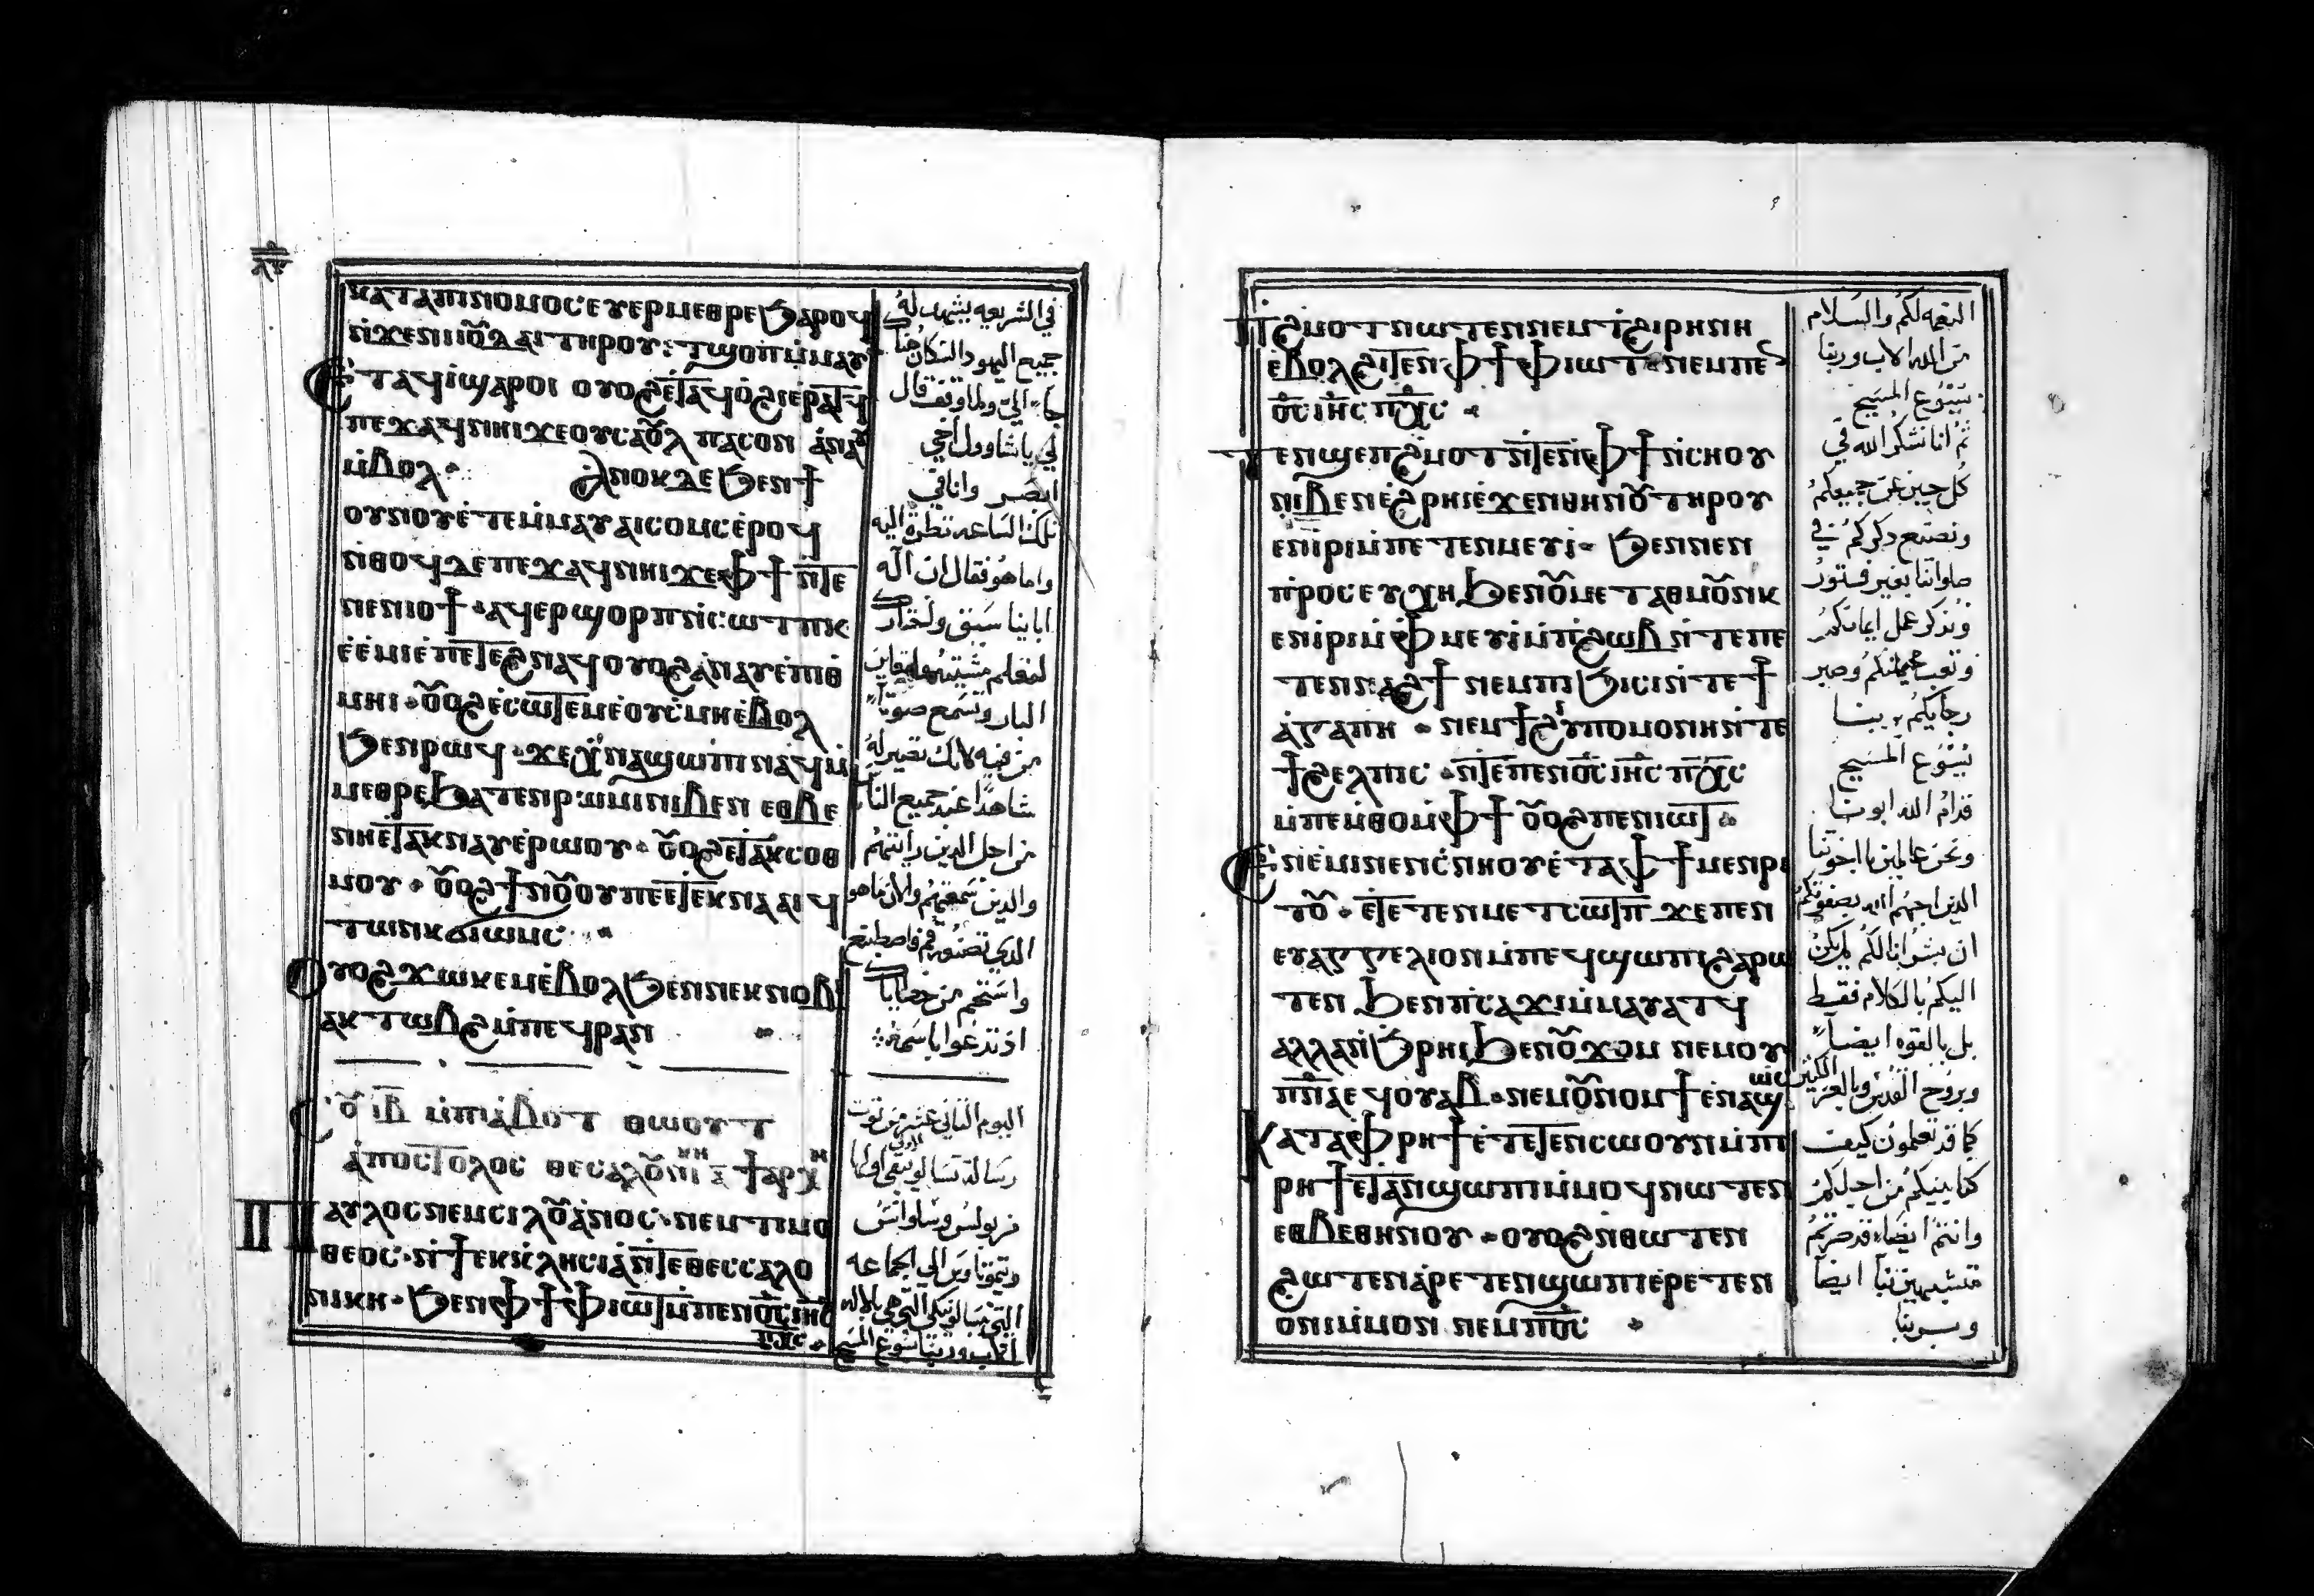 ⲕⲁⲧⲁⲡⲓⲛⲟⲙⲟⲥⲉⲩⲉⲣⲙⲉⲑⲣⲉϧⲁⲣⲟϥ
ⲛ̀ϫⲉⲛⲓⲓⲟⲩⲇⲁⲓ ⲧⲏⲣⲟⲩ
ⲉ̀ⲧⲁϥⲓ̀ϣⲁⲣⲟⲓ ⲟⲩⲟϩⲉ̀ⲧⲁϥⲟ̀ϩⲓⲉⲣⲁⲧϥ
ⲡⲉϫⲁϥⲛⲏⲓϫⲉⲟⲩⲥⲁⲟⲩⲗ ⲡⲁⲥⲟⲛ ⲁ̀ⲛⲁⲩ
ⲙ̀ⲃⲟⲗ ⲁ̀ⲛⲟⲕⲇⲉ ϧⲉⲛϯ
ⲟⲩⲛⲟⲩⲉ̀ⲧⲉⲙ̀ⲙⲁⲩⲁⲓⲥⲟⲙⲥⲉ̀ⲣⲟϥ
ⲛ̀ⲑⲟϥⲇⲉⲡⲉϫⲁϥⲛⲏⲓϫⲉⲫϯ ⲛ̀ⲧⲉ
ⲛⲉⲛⲓⲟϯ ⲁϥⲉⲣϣⲟⲣⲡⲛ̀ⲥⲱⲧⲡⲕ
ⲉ̀ⲉ̀ⲙⲓⲉ̀ⲡⲉⲧⲉϩⲛⲁϥⲟⲩⲟϩⲁ̀ⲛⲁⲩⲉ̀ⲡⲓⲑ
ⲙⲏⲓ ⲟⲩⲟϩⲉ̀ⲥⲱⲧⲉⲙⲉ̀ⲟⲩⲥ̀ⲙⲏⲉ̀ⲃⲟⲗ
ϧⲉⲛⲣⲱϥ ϫⲉⲭ̀ⲛⲁϣⲱⲡⲓ ⲛⲁϥⲙ̀
ⲙⲉⲑⲣⲉϧⲁⲧⲉⲛⲣⲱⲙⲓⲛⲓⲃⲉⲛ ⲉⲑⲃⲉ
ⲛⲏⲉ̀ⲧⲁⲕⲛⲁⲩⲉ̀ⲣⲱⲟⲩ ⲟⲩⲟϩⲉ̀ⲧⲁⲕⲥⲟⲑ
ⲙⲟⲩ ⲟⲩⲟϩϯⲛⲟⲩⲟⲩⲡⲉⲉ̀ⲧⲉⲕⲛⲁⲁⲓϥ
ⲧⲱⲛⲕϭⲓⲱⲙⲥ
ⲟⲩⲟϩϫⲱⲕⲉⲙⲉ̀ⲃⲟⲗϧⲉⲛⲛⲉⲕⲛⲟⲃⲓ
ⲁⲕⲧⲱⲃϩⲙ̀ⲡⲉϥⲣⲁⲛ
ⲓⲃ ⲙ̀ⲡⲓⲁ̀ⲃⲟⲧ ⲑⲱⲟⲩⲧ
ⲁ̀ⲡⲟⲥⲧⲟⲗⲟⲥ ⲑⲉⲥⲁⲗⲟⲩⲛⲓ ϯⲁⲣⲭⲏ
ⲡⲁⲩⲗⲟⲥⲛⲉⲙⲥⲓⲗⲟⲩⲁ̀ⲛⲟⲥ ⲛⲉⲙ ⲧⲓⲙⲟ
ⲑⲉⲟⲥ ⲛ̀ϯⲉⲕⲕ̀ⲗⲏⲥⲓⲁ̀ⲛ̀ⲧⲉⲑⲉⲥⲥⲁⲗⲟ
ⲛⲓⲕⲏ ϧⲉⲛⲫϯⲫⲓⲱⲧⲙ̀ⲡⲉⲛⲟ̅ⲥ̅ⲓⲏ̅ⲥ̅
ⲡⲭ̅ⲥ̅
في الشريعه يشهدله
جميع اليهود السكان هنا
جاء الي ولما وقف قال
لي يا شاوول اخي
ابصر وانا في
تلك الساعه نظرت اليه
واما هو فقال ان اله
ابائنا سبق واختارك
لتعلم مشيته وتعاين
البار وتسمع صوتاً
من فيه لانك تصير له
شاهداً عند جميع الناس
من اجل الذين رأيتهم
والذين سمعتهم والان ما هو
الذي تصنع قم فاصطبغ
واستحم من خطاياك
اذ تدعوا باسمه
اليوم الثاني عشر من توت
من بولس وسلوانس
وتيموتاوس الي الجماعه
ⲡϩ̀ⲙⲟⲧⲛⲱⲧⲉⲛⲛⲉⲙⲧϩⲓⲣⲏⲛⲏ
ⲉ̀ⲃⲟⲗϩⲓⲧⲉⲛⲫϯⲫⲓⲱⲧ ⲛⲉⲙⲡⲉⲛ
ⲟ̅ⲥ̅ ⲓⲏ̅ⲥ̅ ⲡⲭ̅ⲥ̅
ⲧⲉⲛϣⲉⲡϩ̀ⲙⲟⲧⲛ̀ⲧⲉⲛⲫϯⲛ̀ⲥⲏⲟⲩ
ⲛⲓⲃⲉⲛⲉ̀ϩⲣⲏⲓⲉ̀ϫⲉⲛⲑⲏⲛⲟⲩ ⲧⲏⲣⲟⲩ
ⲉⲛⲓ̀ⲣⲓⲙ̀ⲡⲉⲧⲉⲛⲙⲉⲩⲓ̀ ϧⲉⲛⲛⲉⲛ
ⲡ̀ⲣⲟⲥⲉⲩⲭⲏϧⲉⲛⲟⲩⲙⲉⲧⲁⲑⲙⲟⲩⲛⲕ
ⲉⲛⲓ̀ⲣⲓⲙ̀ⲫⲙⲉⲩⲓ̀ⲙ̀ⲡϩⲱⲃ ⲛ̀ⲧⲉⲡⲉ
ⲧⲉⲛⲛⲁϩϯ ⲛⲉⲙⲡⲓϧⲓⲥⲓⲛ̀ⲧⲉϯ
ⲁ̀ⲅⲁⲡⲏ ⲛⲉⲙϯϩⲩⲡⲟⲙⲟⲛⲏⲛ̀ⲧⲉ
ϯϩⲉⲗⲡⲓⲥ ⲛ̀ⲧⲉⲡⲉⲛⲟ̅ⲥ̅ ⲓⲏ̅ⲥ̅ ⲡⲭ̅ⲥ̅
ⲙ̀ⲡⲉⲙ̀ⲑⲟⲙ̀ⲫϯ ⲟⲩⲟϩⲡⲉⲛⲓⲱⲧ
ⲉ̀ⲛⲉ̀ⲙⲓⲛⲉⲛⲥ̀ⲛⲏⲟⲩⲉ̀ⲧⲁⲫϯⲙⲉⲛⲣⲓ
ⲧⲟⲩ ⲉ̀ⲧⲉⲧⲉⲛⲙⲉⲧⲥⲱⲧⲡ ϫⲉⲡⲉⲛ
ⲉⲩⲁⲅⲅⲉⲗⲓⲟⲛⲙ̀ⲡⲉϥϣⲱⲡⲓϩⲁⲣⲱ
ⲧⲉⲛ ϧⲉⲛⲡⲥⲁϫⲓⲙ̀ⲙⲁⲩⲁⲧϥ
ⲁⲗⲗⲁⲛ̀ϧⲣⲏⲓϧⲉⲛⲟⲩϫⲟⲙ ⲛⲉⲙⲟⲩ
ⲡⲛ̅ⲁ̅ⲉϥⲟⲩⲁⲃ ⲛⲉⲙⲟⲩⲛⲟⲙϯⲉ̀ⲛⲁϣⲱⲥ
ⲕⲁⲧⲁⲫⲣⲏϯⲉ̀ⲧⲉⲧⲉⲛⲥⲱⲟⲩⲛⲙ̀ⲡⲓ
ⲣⲏϯⲉ̀ⲧⲁⲛϣⲱⲡⲓⲙ̀ⲙⲟϥⲛⲱⲧⲉⲛ
ⲉⲑⲃⲉⲑⲏⲛⲟⲩ ⲟⲩⲟϩⲛⲑⲱⲧⲉⲛ
ϩⲱⲧⲉⲛⲁ̀ⲣⲉⲧⲉⲛϣⲱⲡⲓⲉ̀ⲣⲉⲧⲉⲛ
ⲟⲛⲓⲙ̀ⲙⲟⲛ ⲛⲉⲙⲡⲟ̅ⲥ̅
النعمه لكم والسلام
من الله الاب وربنا
يسوع المسيح
ثم انا نشكر الله في
كل حين عن جميعكم
ونصنع ذكركم في
صلواتنا بغير فتور
ونذكر عمل ايمانكم
وتعب محبتكم وصبر
رجايكم بربنا
يسوع المسيح
قدام الله ابونا
ونحن عالمين يا اخوتنا
الذين احبهم الله بصفوتكم
ان بشرانا لكم لم يكن
اليكم بالكلام فقط
بل بالقوه ايضاً
وبروح القدس وبالعزا الكثير
كما قد تعلمون كيف
كنا بينكم من اجلكم
وانتم ايضاً قد صرتم
متشبهين بنا ايضاً
وبربنا